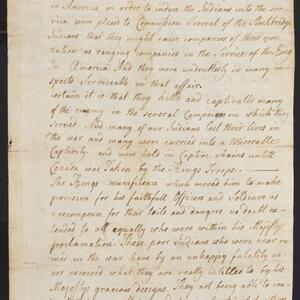 in America in order to induce the Indians into the Ser-
vice were pleas'd to Commission Several of the Stockbridge
Indians that they might raise companies of their own
nation as ranging Companies in the Service of the King
in America And they were undoubtedly in many re-
spects Serviceable in that affair.
certain it is that they kill'd and captivated many
of the enemy in the several Campaigns in which they
Served. And many of our Indians lost their lives in
the war and many were carried into a Miserable
Captivity and were held in Captive chains untill
Canada was Taken by the Kings Troops.
The Kings munificence which moved him to make
provision for his faithfull Officers and Soldiers as
a recompence for their toils and dangers no doubt ex-
tended to all equally who were within his Majestys
proclamation. These poor Indians who were ser
vice'd in the war have by an unhappy fatality ne
ver received what they are really intitled to by his
Majestys gracious designs. They not being able to com